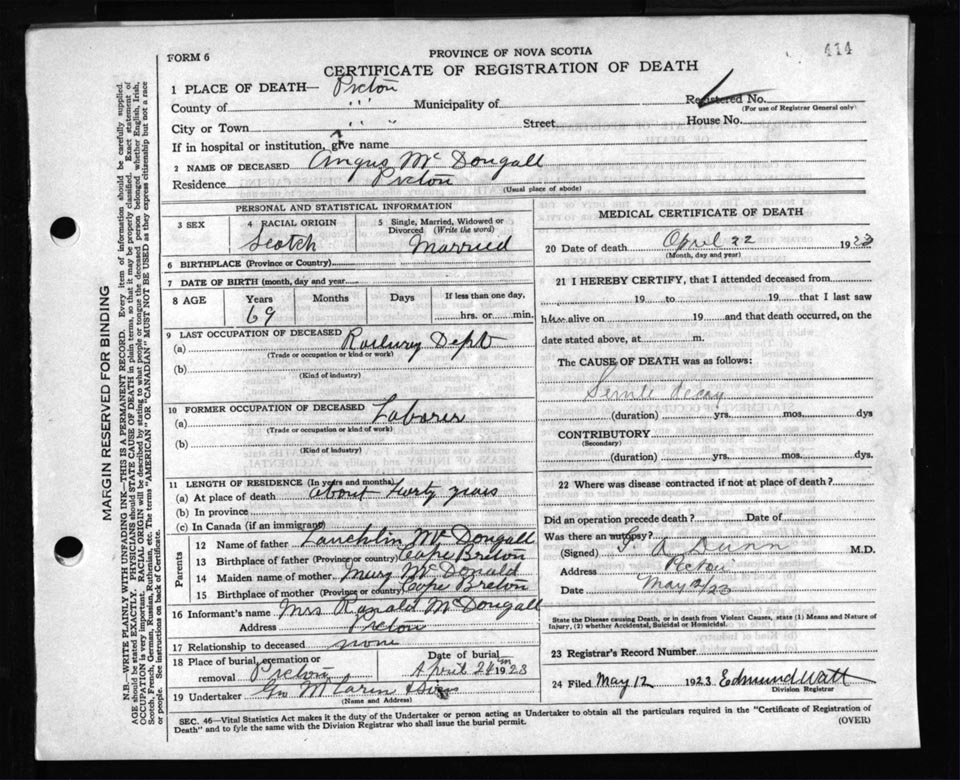 414
FORM 6
PROVINCE OF NOVA SCOTIA
CERTIFICATE OF REGISTRATION OF DEATH
1 PLACE OF DEATH— Pictou
County of " Municipality of Registered No.
(For use of Registrar General only)
City or Town " " " Street House No.
If in hospital or institution, give name
2 NAME OF DECEASED Angus McDougall
Residence Pictou
(Usual place of abode)
PERSONAL AND STATISTICAL INFORMATION
3 SEX 4 RACIAL ORIGIN 5 Single, Married, Widowed or Divorced (Write the word)
Scotch Married
6 BIRTHPLACE (Province or Country)
7 DATE OF BIRTH (month, day and year)
8 AGE Years Months Days If less than one day,
69 hrs. or min.
9 LAST OCCUPATION OF DECEASED
(a) Railway Dept
(Trade or occupation or kind or work)
(b)
(Kind of industry)
10 FORMER OCCUPATION OF DECEASED
(a) Laborer
(Trade or occupation or kind of work)
(b)
(Kind of industry)
11 LENGTH OF RESIDENCE (In years and months)
(a) At place of death about years
(b) In province
(c) In Canada (if an immigrant)
Parents
12 Name of father Lauchlin McDougall
13 Birthplace of father (Province or country) Cape Breton
14 Maiden name of mother Mary McDonald
15 Birthplace of mother (Province or country) Cape Breton
16 Informant's name Mrs Ranald McDougall
Address Pictou
17 Relationship to deceased none
18 Place of burial, cremation or removal Pictou
Date of burial April 24 1923
19 Undertaker Geo McLaren & Sons
(Name and Address)
MEDICAL CERTIFICATE OF DEATH
20 Date of death April 22 1923
(Month, day and year)
21 I HEREBY CERTIFY, that I attended deceased from
19 to 19 that I last saw
h alive on 19 and that death occurred, on the
date stated above, at m.
The CAUSE OF DEATH was as follows:
Senile decay
(duration) yrs. mos. dys
CONTRIBUTORY
(Secondary)
(duration) yrs. mos. dys.
22 Where was disease contracted if not at place of death?
Did an operation precede death? Date of
Was there an autopsy?
(Signed) G. A. Dunn M.D.
Address Pictou
Date May 12/23
State the Disease causing Death, or in death from Violent Causes, state (1) Means and Nature of
Injury, (2) whether Accidental, Suicidal or Homicidal.
23 Registrar's Record Number
24 Filed May 12 1923 Edmund Watt
Division Registrar
SEC. 46—Vital Statistics Act makes it the duty of the Undertaker or person acting as Undertaker to obtain all the particulars required in the "Certificate of Registration of
Death" and to fyle the same with the Division Registrar who shall issue the burial permit.
(OVER)
MARGIN RESERVED FOR BINDING
N.B.—WRITE PLAINLY WITH UNFADING INK—THIS IS A PERMANENT RECORD. Every item of information should be carefully supplied.
AGE should be stated EXACTLY. PHYSICIANS should STATE CAUSE OF DEATH in plain terms, so that it may be properly classified. Exact statement of
OCCUPATION is very important. RACIAL ORIGIN will be described by stating to what people or tongue the deceased person belonged whether English, Irish,
Scotch, French, German, Russian, Ruthenian, etc. The terms "AMERICAN" OR "CANADIAN" MUST NOT BE USED as they express citizenship but not a race
or people. See instructions on back of Certificate.